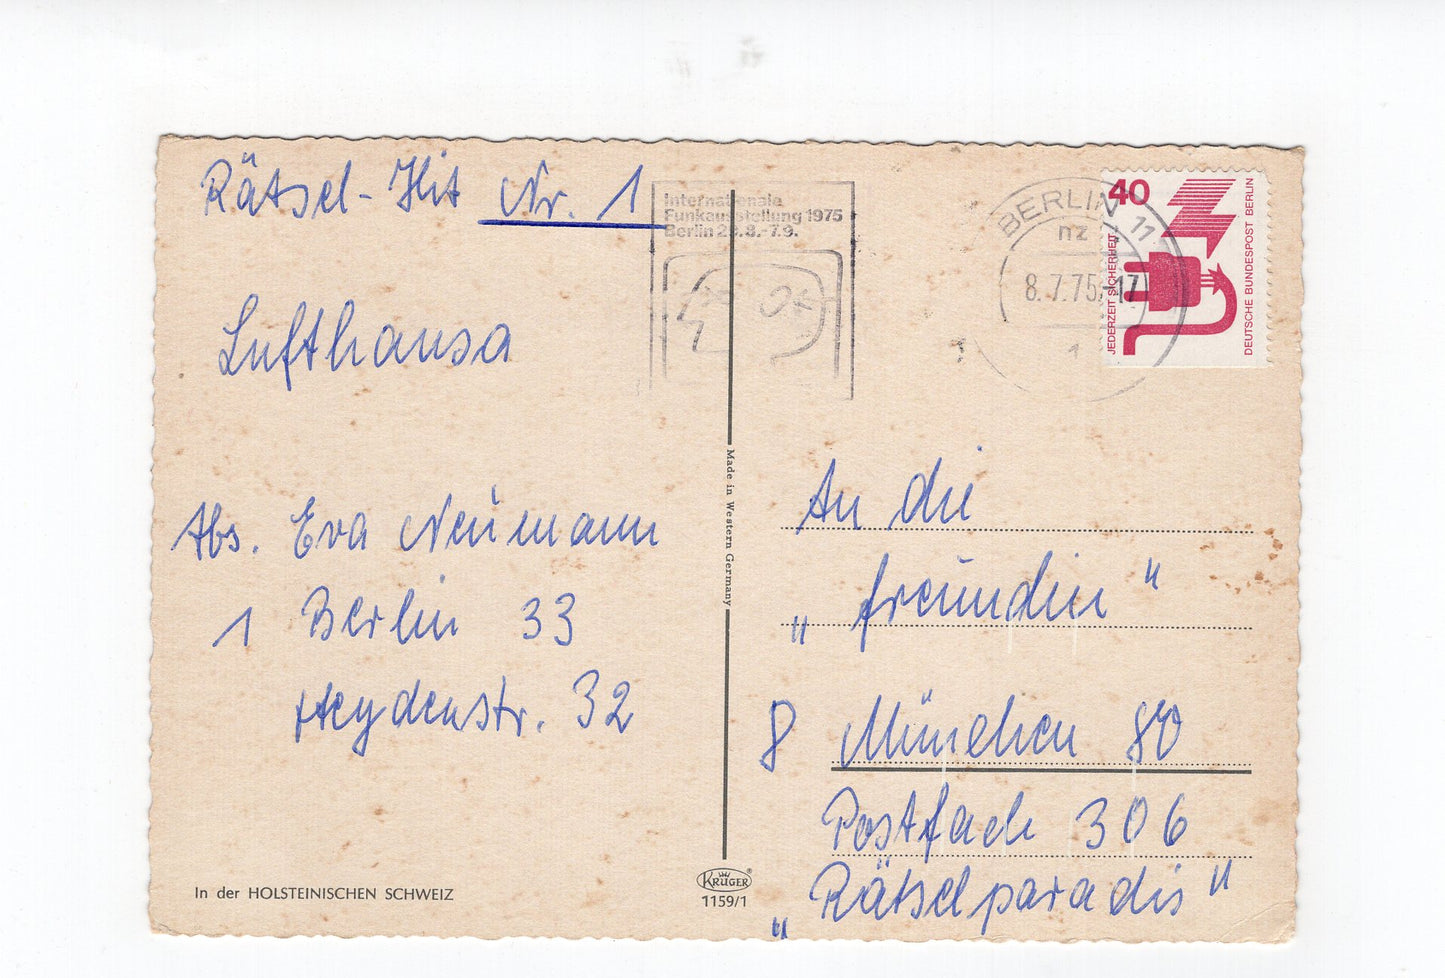 Rätsel-Hit Nr. 1
Lufthansa
Abs. Eva Neumann
1 Berlin 33
Heydenstr. 32
In der HOLSTEINISCHEN SCHWEIZ
Internationale
Funkausstellung 1975
Berlin 29.8.-7.9.
Made in Western Germany
KRÜGER
1159/1
BERLIN 11
nz
8.7.75-17
1
40
JEDERZEIT SICHERHEIT
DEUTSCHE BUNDESPOST BERLIN
An die
„freundin“
8 München 80
Postfach 306
„Rätselparadis“